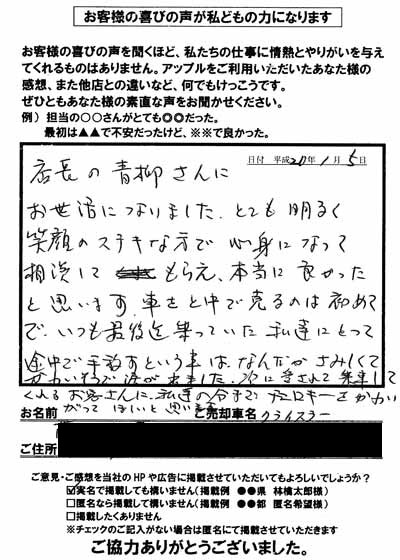 お客様の喜びの声が私どもの力になります
お客様の喜びの声を聞くほど、私たちの仕事に情熱とやりがいを与え
てくれるものはありません。アップルをご利用いただいたあなた様の
感想、また他店との違いなど、何でもけっこうです。
ぜひともあなた様の素直な声をお聞かせください。
例）担当の○○さんがとても◎◎だった。
最初は▲▲で不安だったけど、※※で良かった。
日付 平成20年1月5日
店長の青柳さんに
お世話になりました。とても明るく
笑顔のステキな方で 心身になって
相談して もらえ、本当に良かった
と思います。車を途中で売るのは初めて
で、いつも最後迄乗っていた私達にとって
途中で手放すという事は、なんだかさみしくて
涙が出ました。次に
くれるお客さんに、私達の分まで かわい
がってほしいと思います
お名前
ご売却車名 クライスラー
ご住所
ご意見・ご感想を当社のHPや広告に掲載させていただいてもよろしいでしょうか？
☑実名で掲載しても構いません（掲載例 ●●県 林檎太郎様）
□匿名なら掲載して構いません（掲載例 ●●都 匿名希望様）
□掲載したくありません
※チェックのご記入がない場合は匿名にて掲載させていただきます
ご協力ありがとうございました。